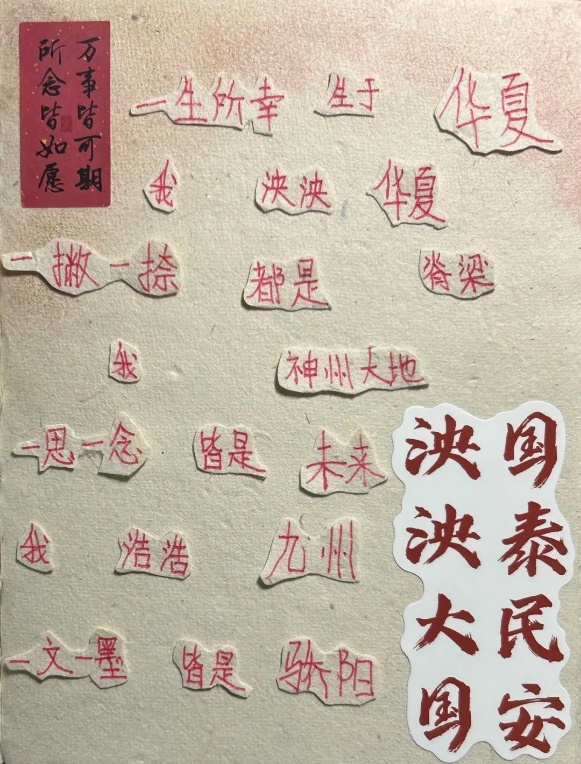 万事皆可期
所念皆如愿
一生所幸 生于 华夏
我 泱泱 华夏
一撇一捺 都是 脊梁
我 神州大地
一思一念 皆是 未来
我 浩浩 九州
一文一墨 皆是 骄阳
国泰民安
泱泱大国